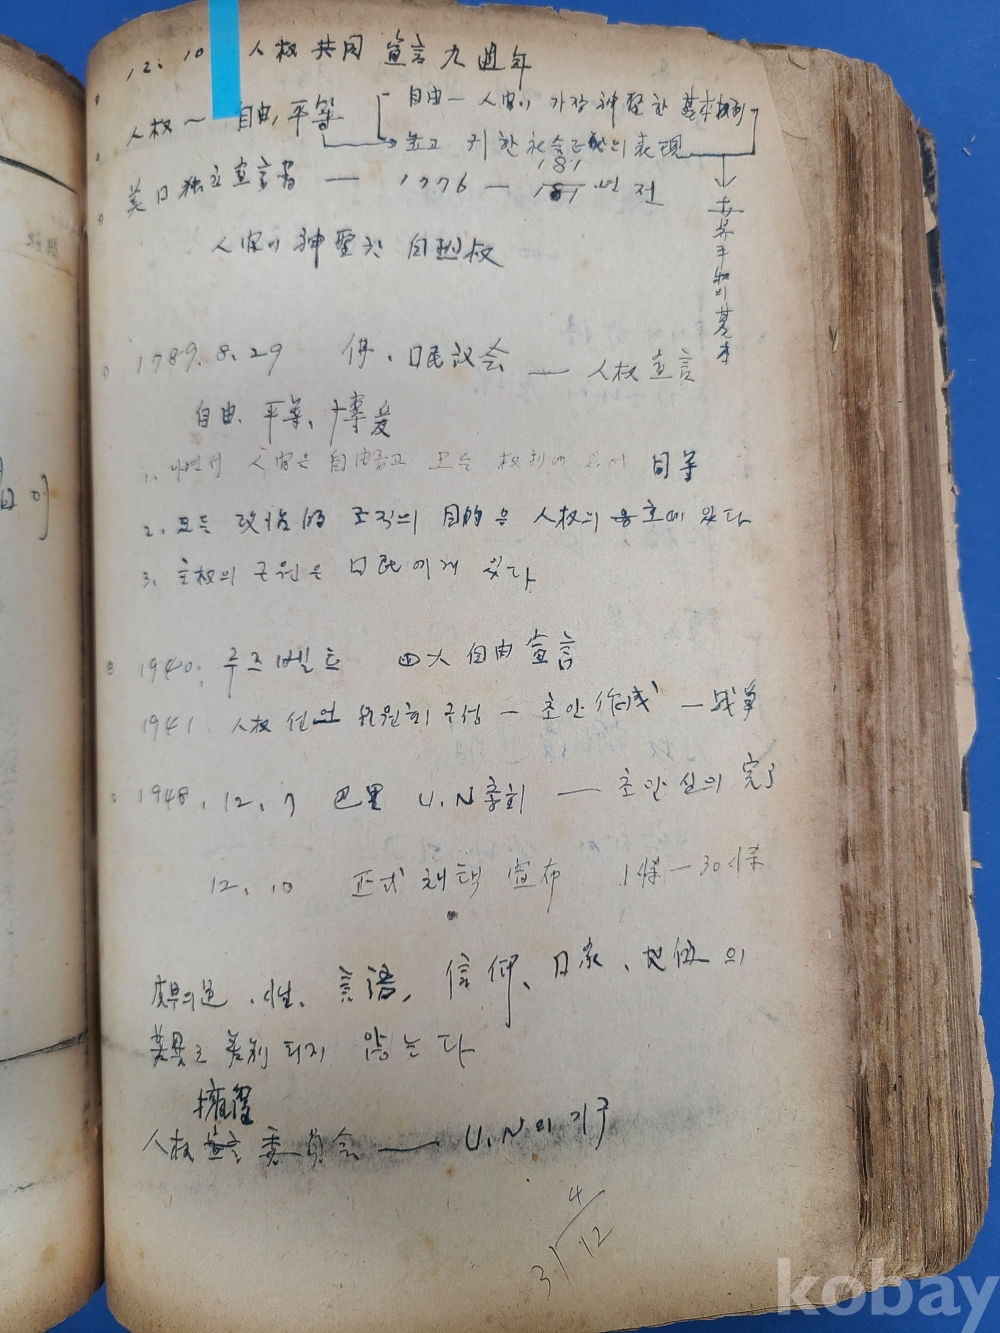 12. 10 人权 共同 宣言 九 週年
人权 ~ 自由, 平等
自由 — 人间이 가장 神聖한 基本权利
높고 귀한 社会 의 表現
美日独立宣言書 — 1776 — 181 년 전
181
人间이 神聖한 自 权
1789. 8. 29 佛. 日民议会 — 人权宣言
自由. 平等、博爱
1. 나면서 人间은 自由롭고 모든 权利에 있어 同等
2. 모든 政治的 조직의 目的은 人权의 옹호에 있다
3. 主权의 근원은 日民에게 있다
1940. 루즈벨트 四大自由宣言
1941 人权선언 위원회 구성 — 초안 作成 — 战争
1948. 12. 7 巴里 U.N총회 — 초안심의 完了
12. 10 正式 채택 宣布 1條 — 30條
皮膚의 色. 性. 言語, 信仰、日家、地位의
異 로 差別되지 않는다
擁護
人权宣言委員会 — U.N의 기구
4/12
31